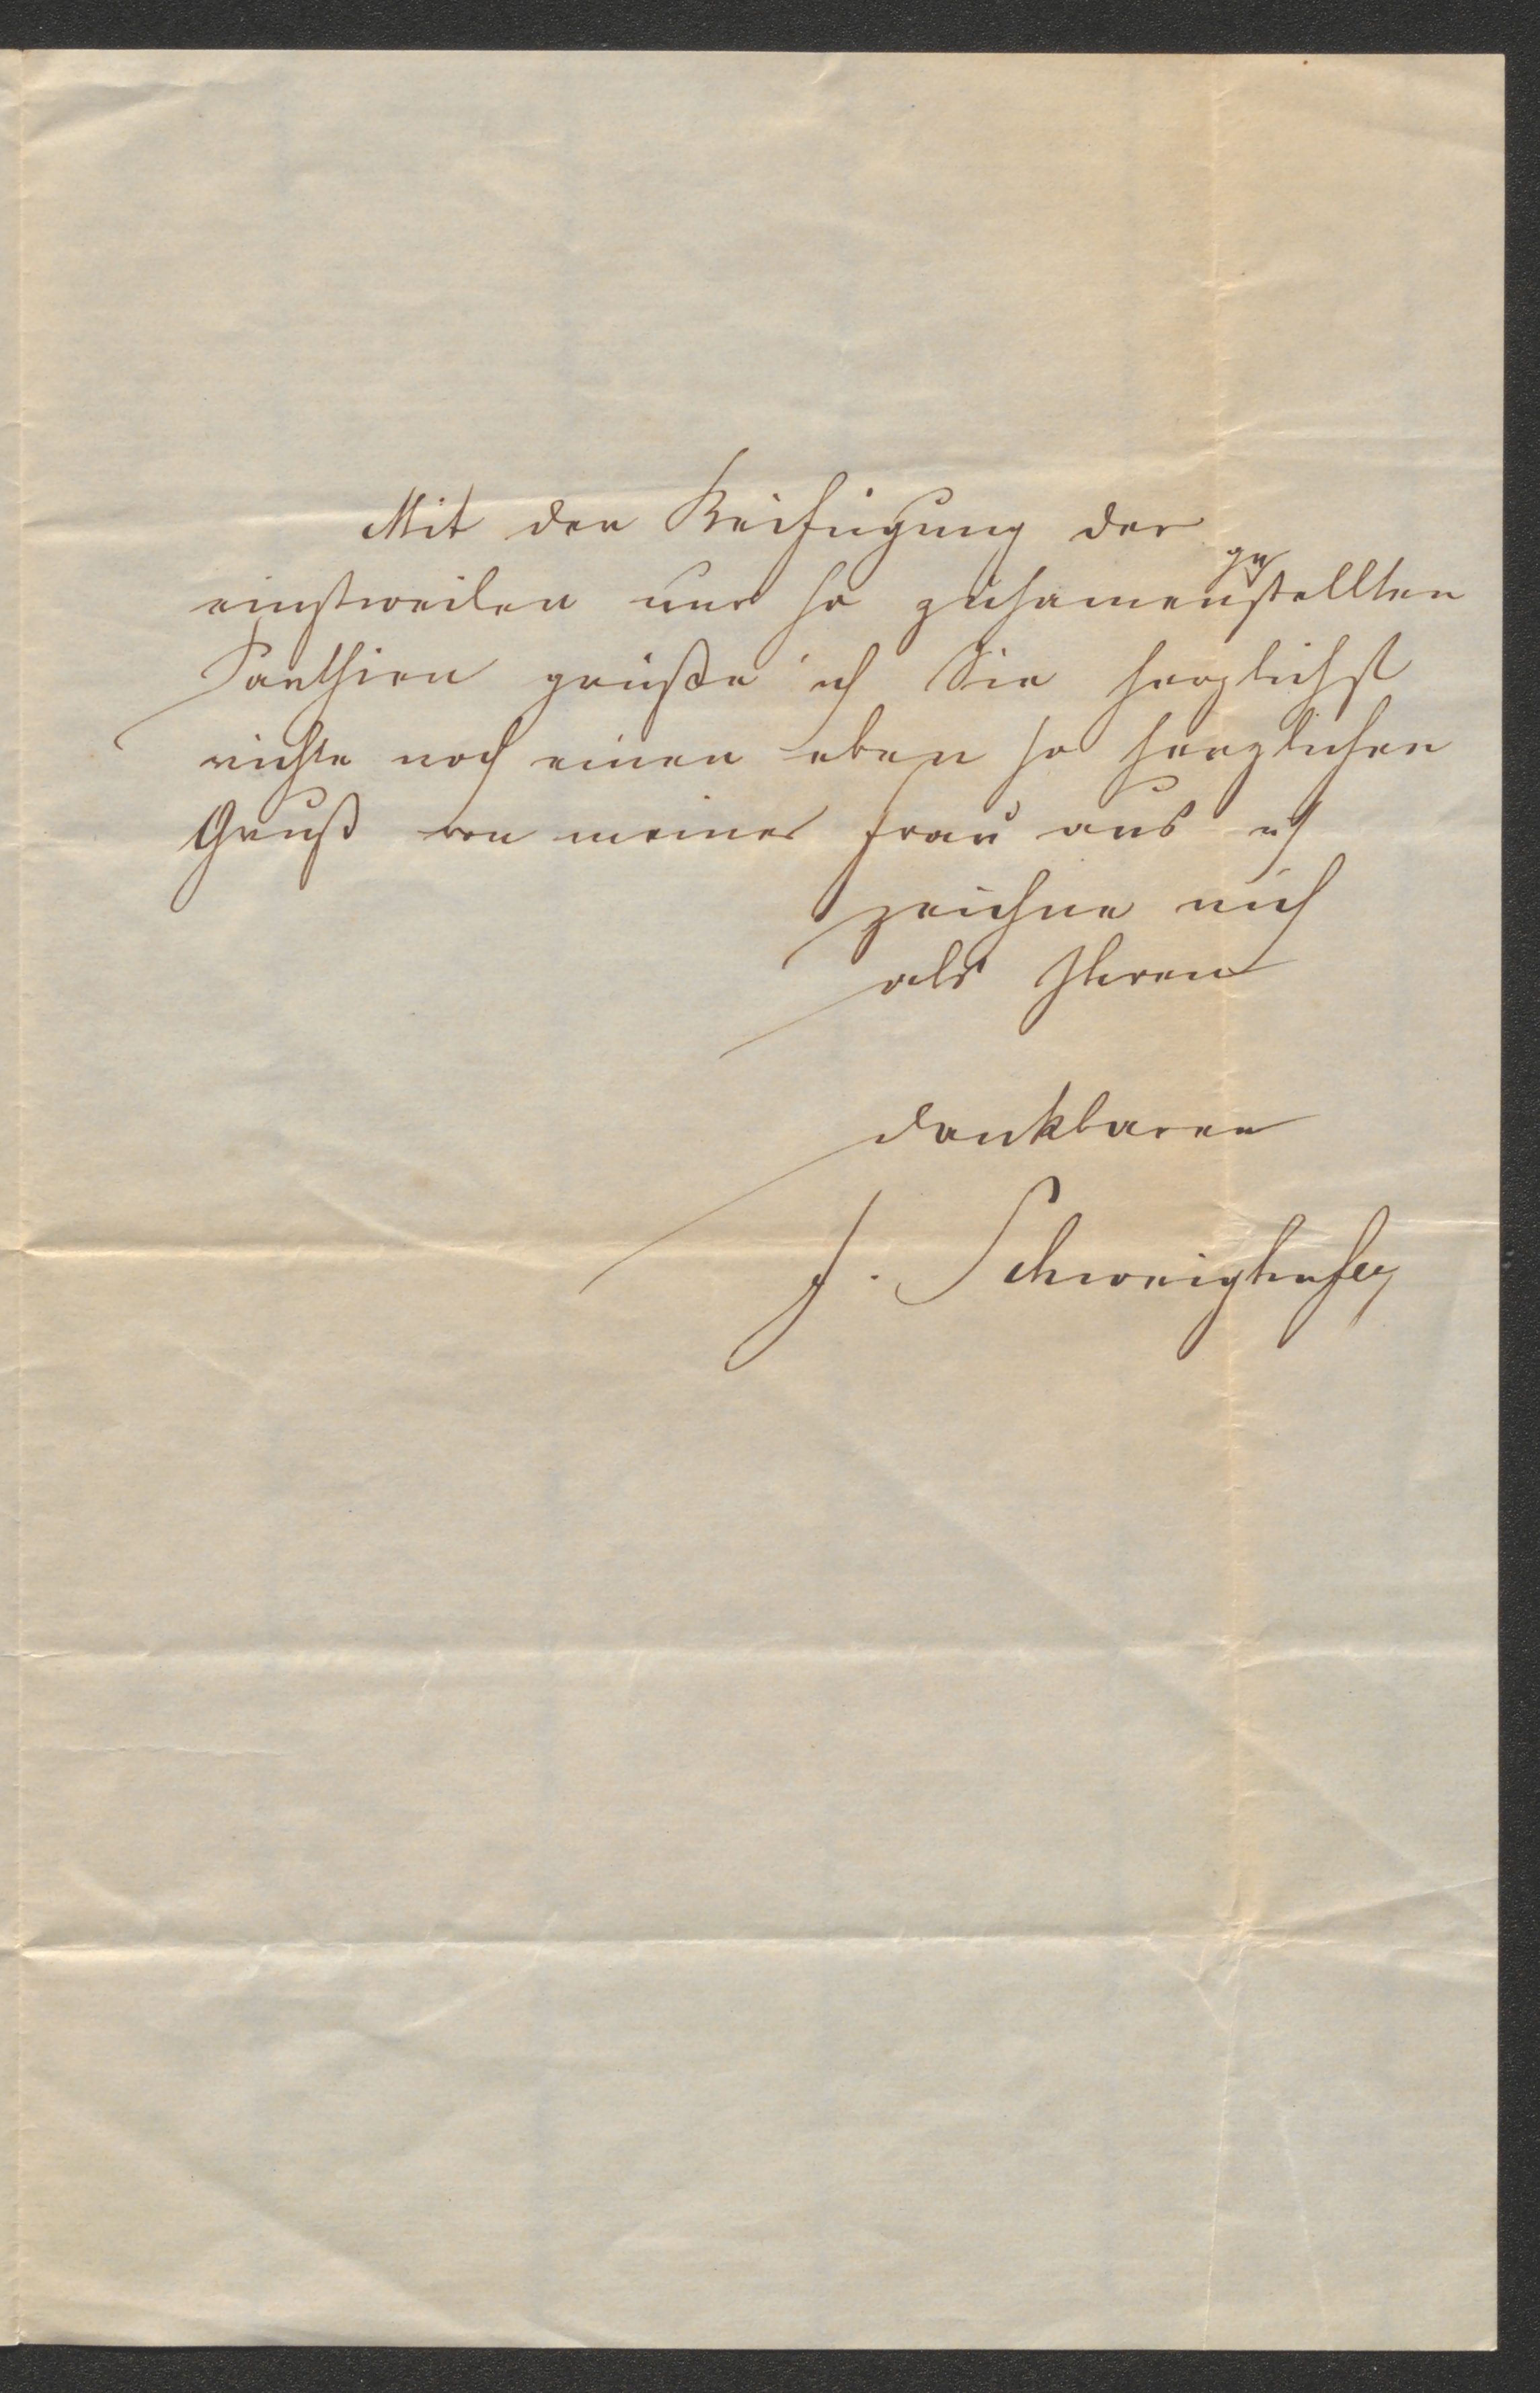 Mit der Beifügung der
einstweilen nur so zusamengestellten
Parthien grüße ich Sie herzlichst
richte noch einen eben so herzlichen
Gruß von meiner Frau aus u
zeichne mich
als Ihren
dankbaren
J. Schweighofer